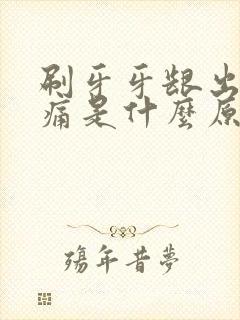 刷牙牙龈出
痛是什麼原
殤年昔夢